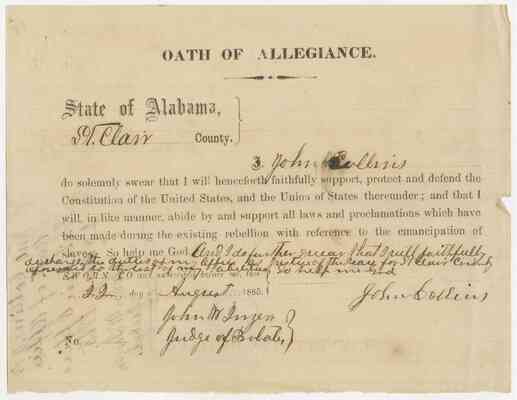 OATH OF ALLEGIANCE.
State of Alabama,
St. Clair County.
I, John Collins
do solemnly swear that I will henceforth faithfully support, protect and defend the
Constitution of the United States, and the Union of States thereunder; and that I
will, in like manner, abide by and support all laws and proclamations which have
been made during the existing rebellion with reference to the emancipation of
slaves. So help me God. And I do further swear that I will faithfully
discharge the duties of my office Justice of the Peace for St Clair County
to the best of my Abilities, so help me God
SWORN TO and subscribed before me, this
day of August 1865.
John Collins
John W
Judge of Probate
No.